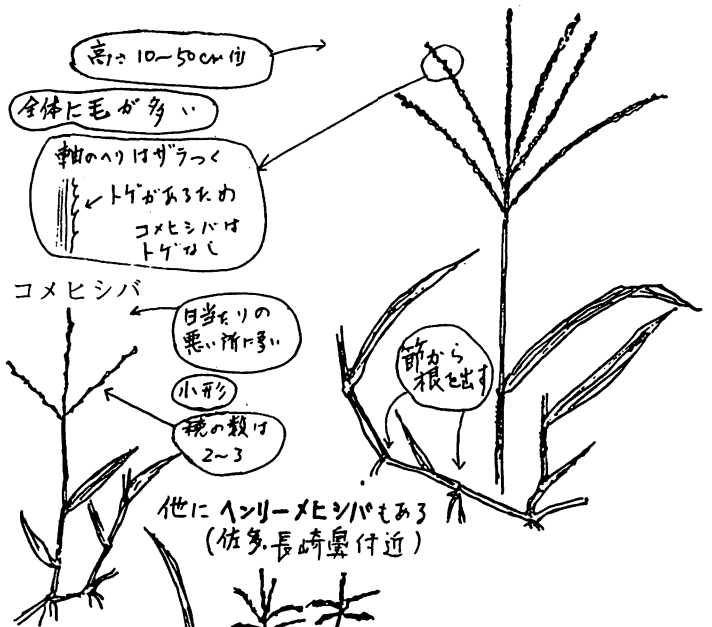 高さ 10〜50cm位
全体に毛が多い
軸のへりはザラつく
トゲがあるため
コメヒシバは
トゲなし
コメヒシバ
日当たりの
悪い所に多い
小形
穂の数は
2〜3
節から
根を出す
他にヘンリーメヒシバもある
(佐多、長崎鼻付近)